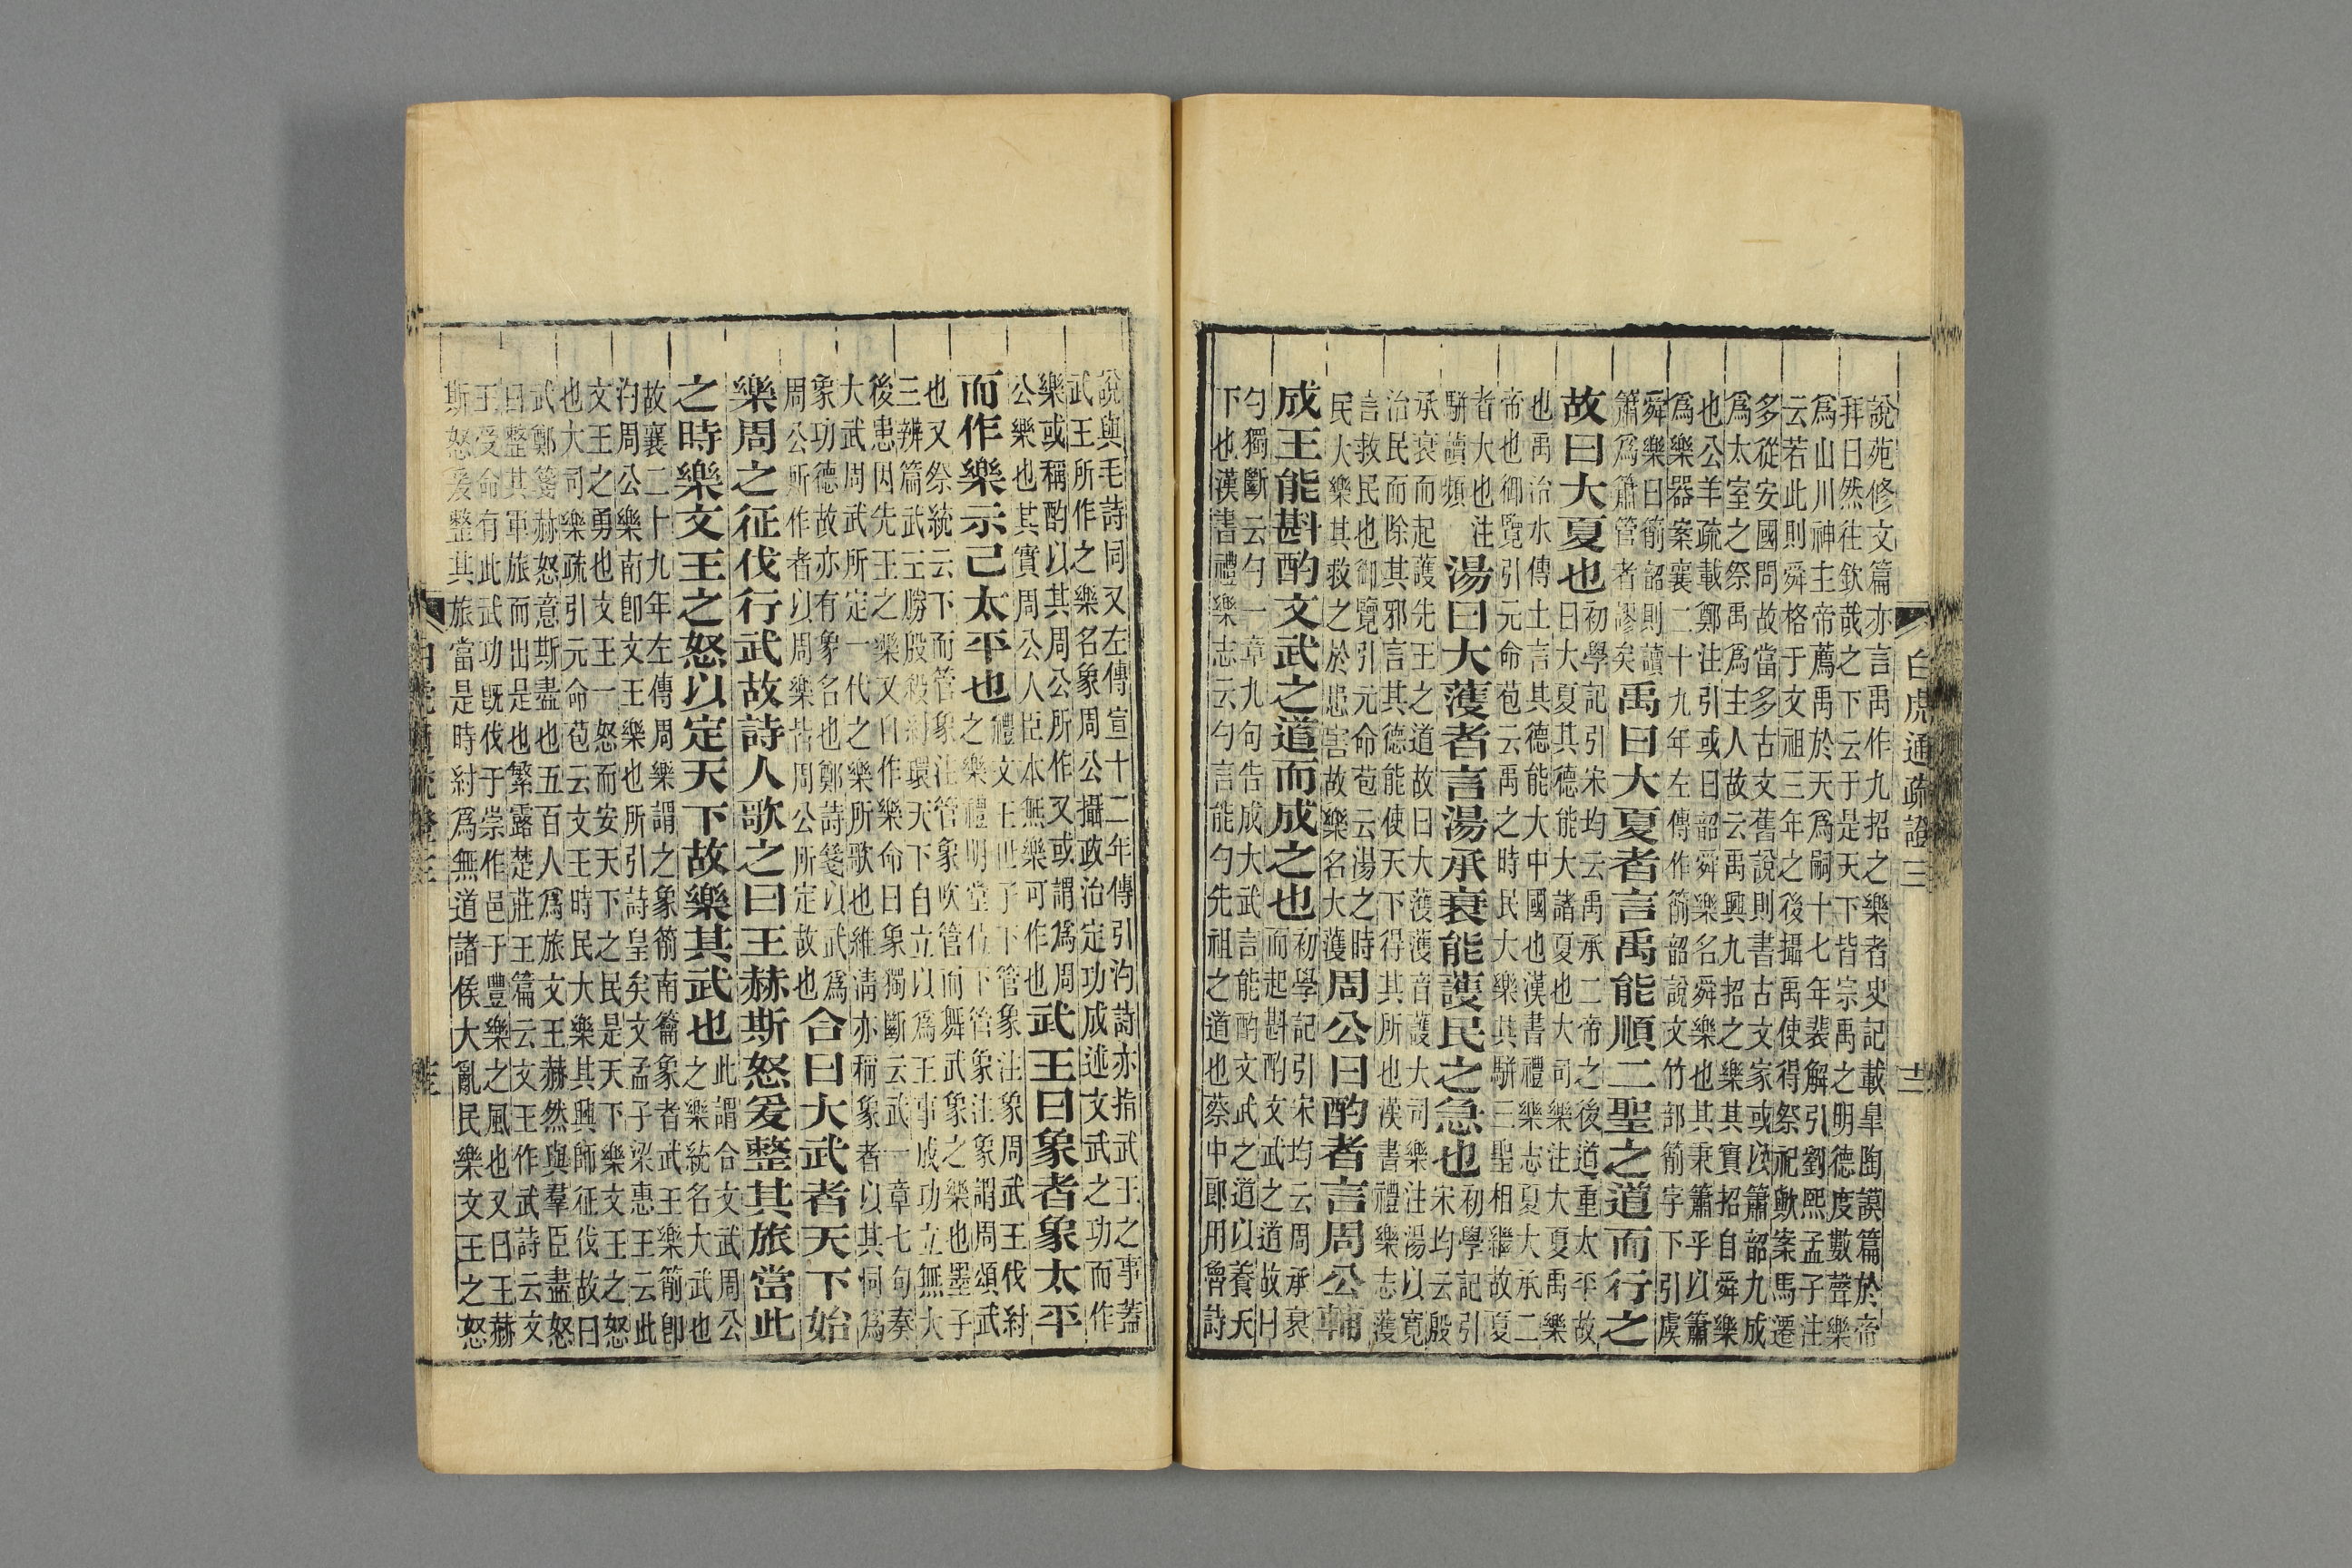 白虎通疏證三 十二
說苑修文篇亦言禹作九招之樂者史記載皐陶謨篇於帝
拜曰然往欽哉之下云于是天下皆宗禹之明德度數聲樂
爲山川神主帝薦禹於天爲嗣十七年裴解引劉熙孟子注
云若此則舜格于文祖三年之後攝禹使得祭祀歟案馬遷
多從安國問故當多古文舊說則書古文家或以簫韶九成
爲太室之祭禹爲主人故云禹興九招之樂其實招自舜樂
也公羊疏載鄭注引或曰韶舜樂名舜樂也其秉簫乎以簫
爲樂器案襄二十九年左傳作箾韶說文竹部箾字下引虞
舜樂曰箾韶則讀
簫爲簫管者謬矣
禹曰大夏者言禹能順二聖之道而行之
故曰大夏也
初學記引宋均云禹承二帝之後道重太平故
曰大夏其德能大諸夏也大司樂注大夏禹樂
也禹治水傳土言其德能大中國也漢書禮樂志夏大承二
帝也御覽引元命苞云禹之時民大樂其駢三聖相繼故夏
者大也注
駢讀頻
湯曰大濩者言湯承衰能護民之急也
初學記引
宋均云殷
承衰而起護先王之道故曰大濩濩音護大司樂注湯以寬
治民而除其邪言其德能使天下得其所也漢書禮樂志濩
言救民也御覽引元命苞云湯之時
民大樂其救之於患害故樂名大濩
周公曰酌者言周公輔
成王能斟酌文武之道而成之也
初學記引宋均云周承衰
而起斟酌文武之道故曰
勺獨斷云勺一章九句告成大武言能酌文武之道以養天
下也漢書禮樂志云勺言能勺先祖之道也蔡中郎用魯詩
說與毛詩同又左傳宣十二年傳引汋詩亦指武王之事蓋
武王所作之樂名象周公攝政治定功成述文武之功而作
樂或稱酌以其周公所作又或謂爲周
公樂也其實周公人臣本無樂可作也
武王曰象者象太平
而作樂示己太平也
禮文王世子下管象注象周武王伐紂
之樂禮明堂位下管象注象謂周頌武
也又祭統云下而管象注管象吹管而舞武象之樂也墨子
三辨篇武王勝殷殺紂環天下自立以爲王事成功立無大
後患因先王之樂又自作樂命曰象獨斷云武一章七句奏
大武周武所定一代之樂所歌也維清亦稱象者以其同爲
象功德故亦有象名也鄭詩箋以武爲
周公所作者以周樂皆周公所定故也
合曰大武者天下始
樂周之征伐行武故詩人歌之曰王赫斯怒爰整其旅當此
之時樂文王之怒以定天下故樂其武也
此謂合文武周公
之樂統名大武也
故襄二十九年左傳周樂謂之象箾南籥象者武王樂箾即
汋周公樂南即文王樂也所引詩皇矣文孟子梁惠王云此
文王之勇也文王一怒而安天下之民是天下樂文王之怒
也大司樂疏引元命苞云文王時民大樂其興師征伐故曰
武鄭箋赫怒意斯盡也五百人爲旅文王赫然與羣臣盡怒
曰整其軍旅而出是也繁露楚莊王篇云文王作武詩云文
王受命有此武功旣伐于崇作邑于豐樂之風也又曰王赫
斯怒爰整其旅當是時紂爲無道諸侯大亂民樂文王之怒